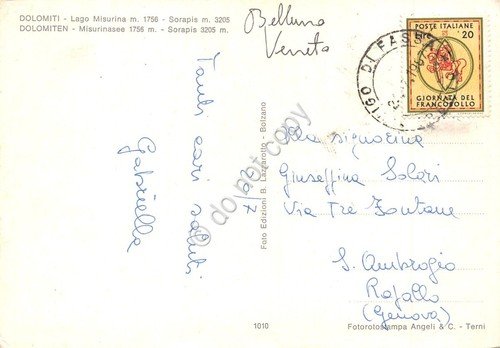 DOLOMITI - Lago Misurina m. 1756 - Sorapis m. 3205
DOLOMITEN - Misurinasee 1756 m - Sorapis m. 3205
Belluno
Veneto
POSTE ITALIANE
20
GIORNATA DEL
FRANCOBOLLO
VIGO DI FASSA
Tanti cari saluti
Gabriella
26/7
Foto Edizioni B. Lazzarotto - Bolzano
do not copy
alla signorina
Giuseffina Solari
Via Tre Fontane
S. Ambrogio
Rapallo
(Genova)
1010
Fotorotostampa Angeli & C. - Terni